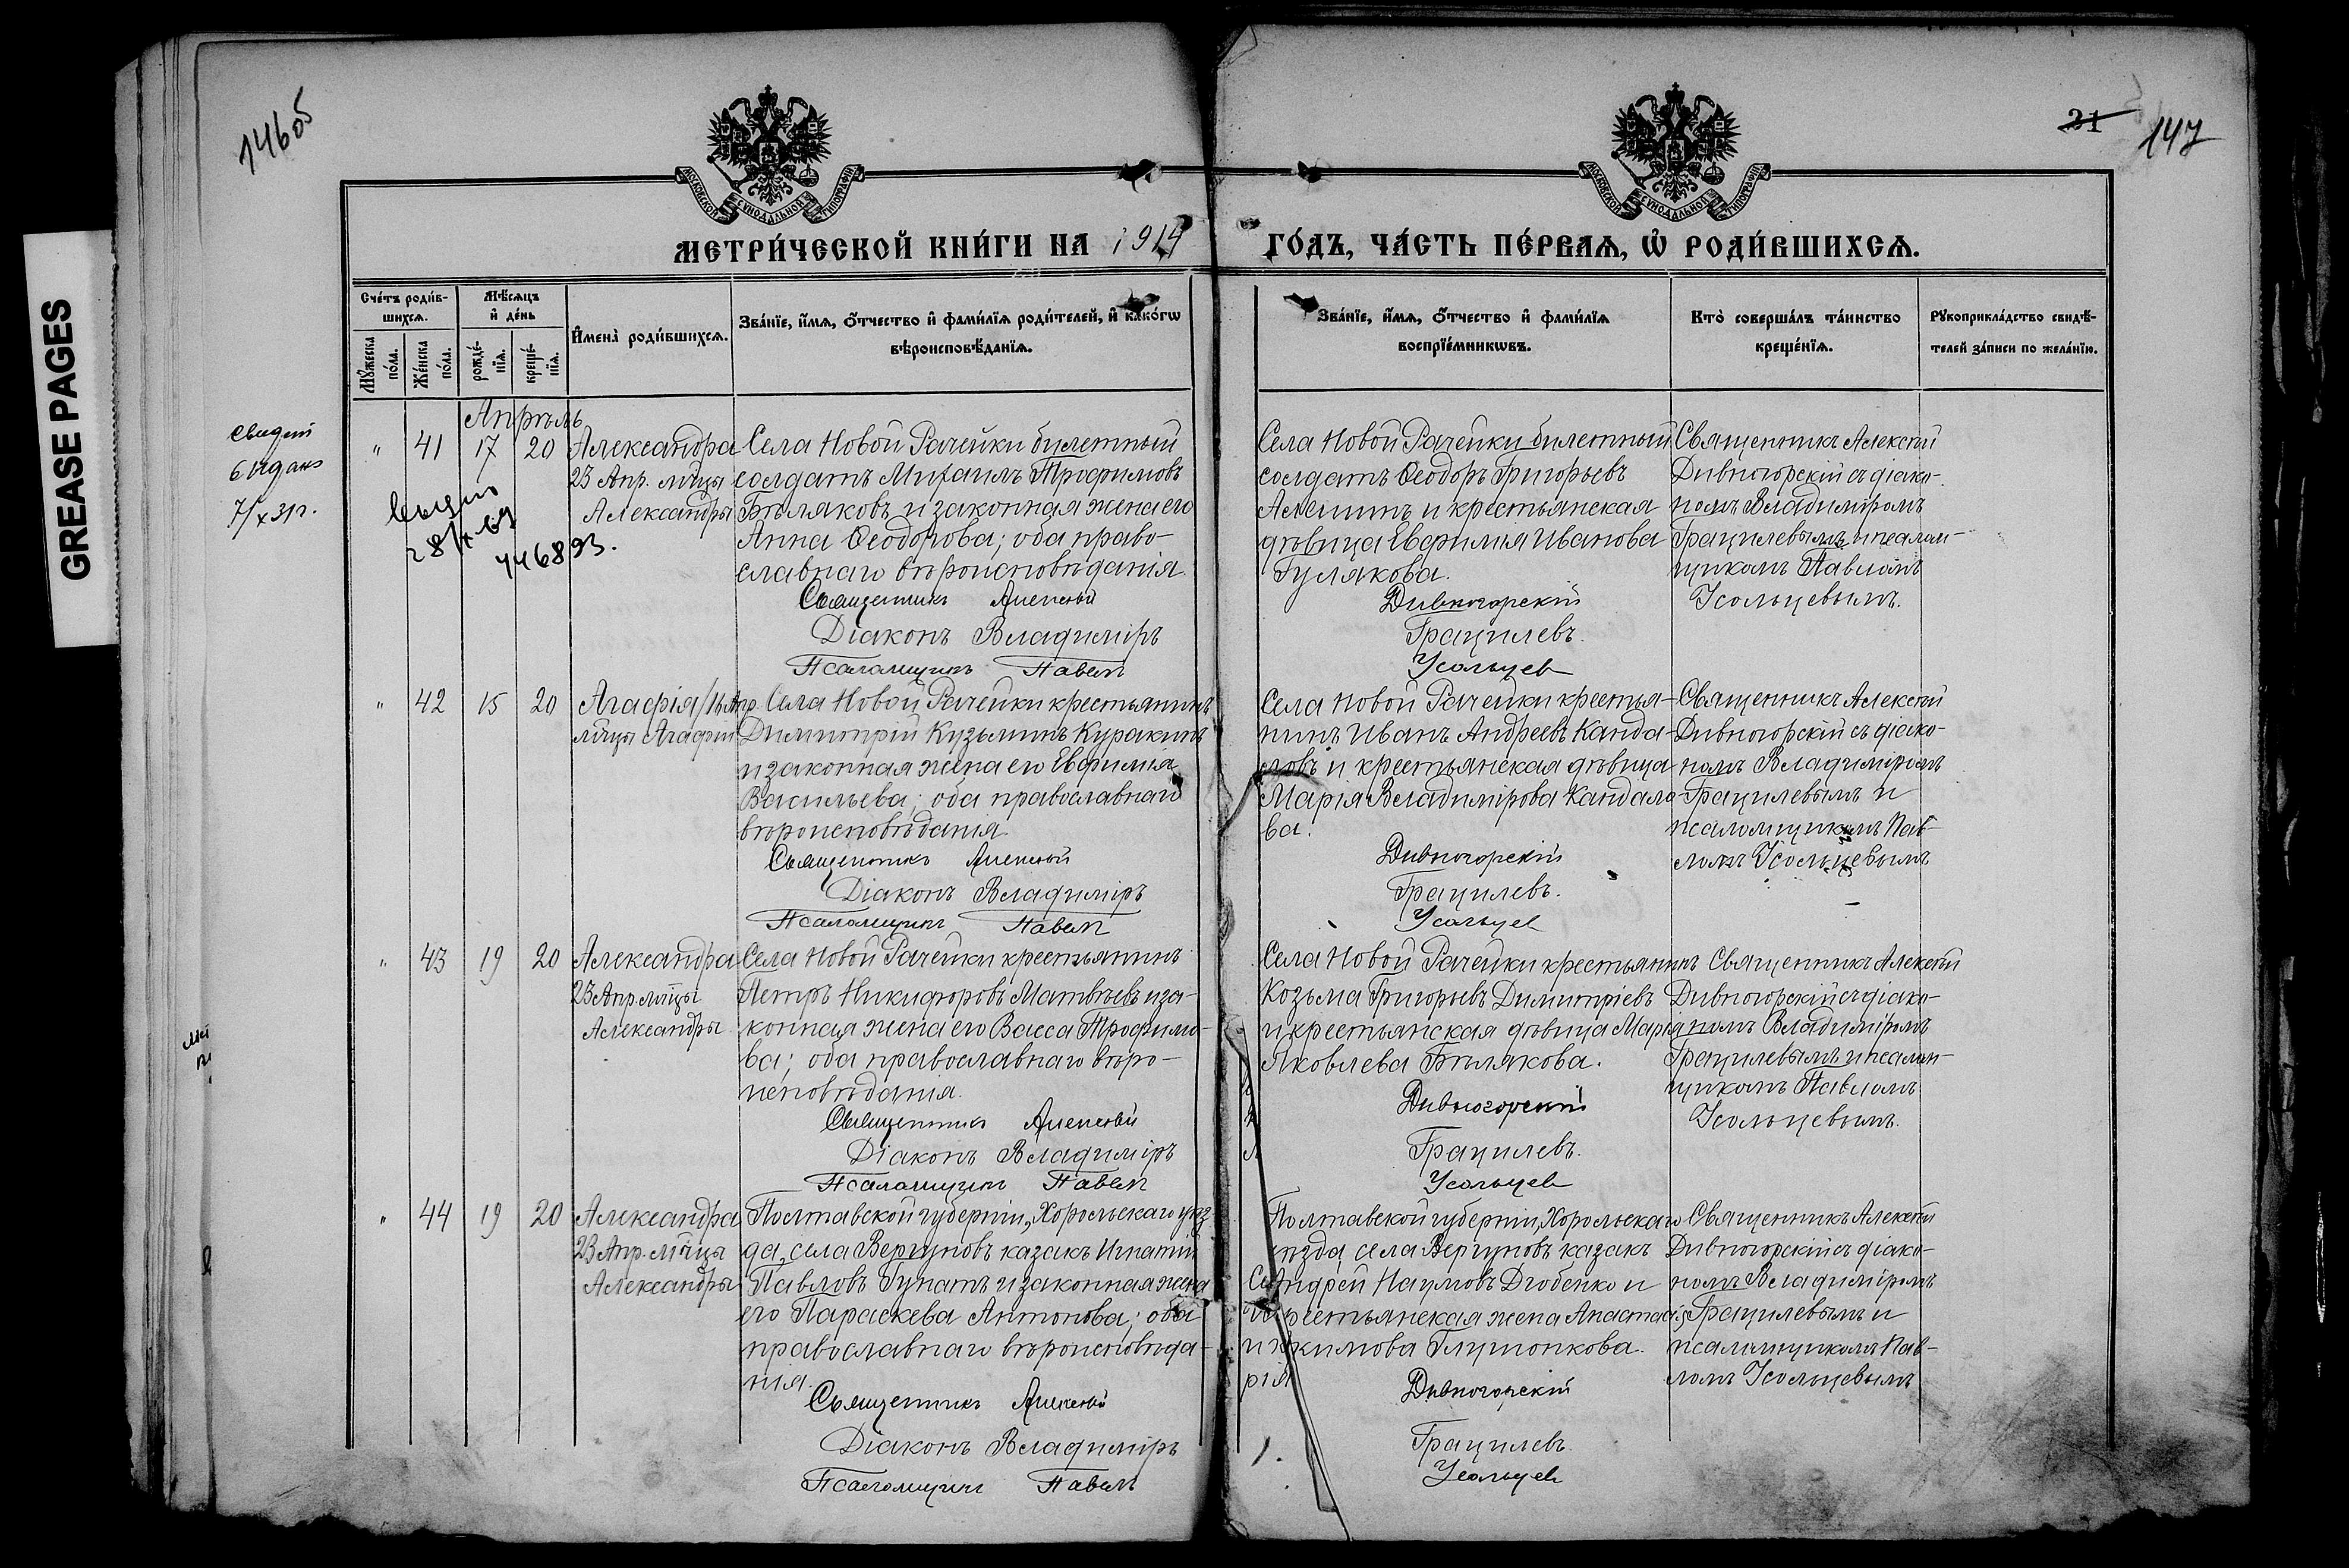 146об
31
147
GREASE PAGES
МОСКОВСКОЙ СѴНОДАЛЬНОЙ ТИПОГРАФІИ
МОСКОВСКОЙ СѴНОДАЛЬНОЙ ТИПОГРАФІИ
МЕТРИ́ЧЕСКОЙ КНИ́ГИ НА 1914
ГО́ДЪ, ЧА́СТЬ ПЕ́РВАѦ, Ѡ҆ РОДИ́ВШИХСѦ.
Сче́тъ роди́в-
шихсѧ.
Мꙋ́жеска по́ла.
Же́нска по́ла.
Мѣ́сѧцъ
и҆ де́нь
рожде́-
нїѧ.
креще́-
нїѧ.
И҆мена̀ роди́вшихсѧ.
Зва́нїе, и҆́мѧ, ѻ҆́тчество и҆ фами́лїѧ роди́телей, и҆ како́гѡ
вѣроисповѣ́данїѧ.
Зва́нїе, и҆́мѧ, ѻ҆́тчество и҆ фами́лїѧ
воспрїе́мникѡвъ.
Кто̀ соверша́лъ та́инство
креще́нїѧ.
Рꙋкоприкла́дство свидѣ́-
телей за́писи по жела́нїю.
Апрѣль
свидет
7/X 31 г.
446893.
" 41 17 20
Александра
23 Апр. м̃цы
Александры
Села Новой Рачейки билетный
солдатъ Михаилъ Трофимовъ
Бѣляковъ и законная жена его
Анна Ѳеодорова; оба право-
славнаго вѣроисповѣданія.
Священникъ Алексѣй
Діаконъ Владиміръ
Псаломщикъ Павелъ
Села Новой Рачейки билетный
солдатъ Ѳеодоръ Григорьевъ
и крестьянская
дѣвица Евфимія Иванова
Гулякова.
Дивногорскій
Грацилевъ.
Усольцев
Священникъ Алексѣй
Дивногорскій съ діако-
номъ Владиміромъ
Грацилевымъ и псалом-
щикомъ Павломъ
Усольцевымъ.
" 42 15 20
Агафія /16 Апр.
м̃цы Агафіи
Села Новой Рачейки крестьянинъ
Димитрій Кузьминъ Куракинъ
и законная жена его Евфимія
Васильева; оба православнаго
вѣроисповѣданія.
Священникъ Алексѣй
Діаконъ Владиміръ
Псаломщикъ Павелъ
Села Новой Рачейки крестья-
нинъ Иванъ Андреевъ Канда-
ловъ и крестьянская дѣвица
Марія Владимірова Кандало-
ва.
Дивногорскій
Грацилевъ.
Усольцев
Священникъ Алексѣй
Дивногорскій съ діако-
номъ Владиміромъ
Грацилевымъ и
псаломщикомъ Пав-
ломъ Усольцевымъ
" 43 19 20
Александра
23 Апр. м̃цы
Александры
Села Новой Рачейки крестьянинъ
Петръ Никифоровъ Матвѣевъ и за-
конная жена его Васса Трофимо-
ва; оба православнаго вѣро-
исповѣданія.
Священникъ Алексѣй
Діаконъ Владиміръ
Псаломщикъ Павелъ
Села Новой Рачейки крестьянинъ
Козьма Григорьевъ Димитріевъ
и крестьянская дѣвица Марія
Яковлева Бѣлякова.
Дивногорскій
Грацилевъ.
Усольцев
Священникъ Алексѣй
Дивногорскій съ діако-
номъ Владиміромъ
Грацилевымъ и псалом-
щикомъ Павломъ
Усольцевымъ.
" 44 19 20
Александра
23 Апр. м̃цы
Александры
Полтавской губерніи, Хорольскаго уѣз
да, села Вергуновъ казакъ Игнатій
Павловъ Гунатъ и законная жена
его Параскева Антонова; оба
православнаго вѣроисповѣда-
нія.
Священникъ Алексѣй
Діаконъ Владиміръ
Псаломщикъ Павелъ
Полтавской губерніи, Хорольскаго
уѣзда села Вергуновъ казакъ
Андрей Наумовъ Дзюбенко и
крестьянская жена Анастасія
Екимова Глушонкова.
Дивногорскій
Грацилевъ.
Усольцев
Священникъ Алексѣй
Дивногорскій съ діако-
номъ Владиміромъ
Грацилевымъ и
псаломщикомъ Пав-
ломъ Усольцевымъ